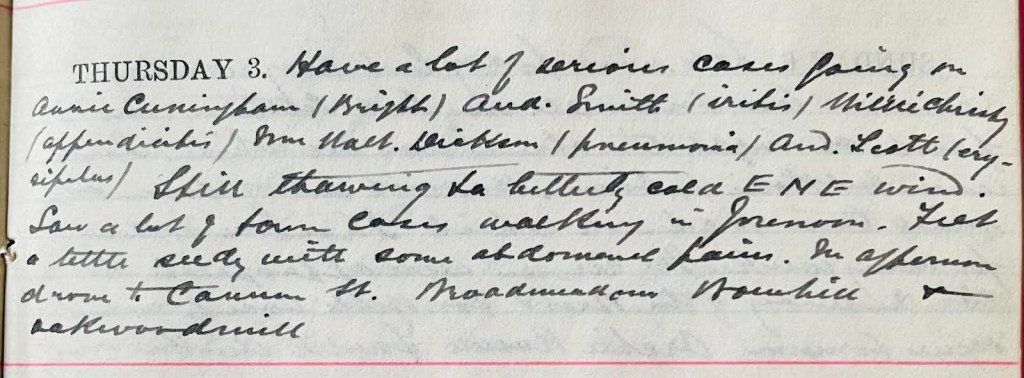 THURSDAY 3. Have a lot of serious cases going on
Annie Cuningham (Bright) And. Smith (iritis) Willie Christy
(appendicitis) Dickson (pneumonia) And. Scott (ery-
sipelas) Still thawing to a bitterly cold E N E wind.
Saw a lot of town cases walking in forenoon. Feel
a little seedy with some abdomenal pains. In afternoon
drove to St. Broadmeadows Howhill &
oakwoodmill